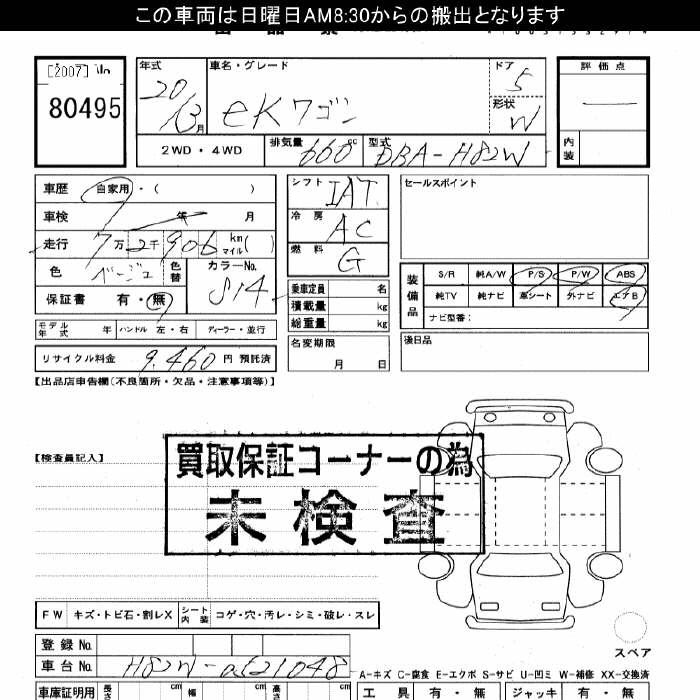 この車両は日曜日AM8:30からの搬出となります
[2007] No
80495
年式
20/3月
車名・グレード
eKワゴン
ドア
5
形状
W
評価点
内装
2WD・4WD
排気量
660cc
型式
DBA-H82W
車歴 自家用・( )
車検 年 月
走行 7万2千906 km マイル( )
色 ベージュ
色替
カラーNo.
S14
保証書 有・無
シフト
IAT
冷房
AC
燃料
G
乗車定員 名
積載量 kg
総重量 kg
名変期限
月 日
セールスポイント
装備品
S/R 純A/W P/S P/W ABS
純TV 純ナビ 革シート 外ナビ エアB
ナビ型番:
後日品
モデル年式 年 ハンドル 左・右 ディーラー・並行
リサイクル料金 9,460 円 預託済
【出品店申告欄(不良箇所・欠品・注意事項等)】
【検査員記入】
買取保証コーナーの為
未検査
FW キズ・トビ石・割レX シート内装 コゲ・穴・汚レ・シミ・破レ・スレ
スペア
登録No.
車台No. H82W-0621048
A-キズ C-腐食 E-エクボ S-サビ U-凹ミ W-補修 XX-交換済
車庫証明用 長さ cm 幅 cm 高さ cm
工具 有・無 ジャッキ 有・無